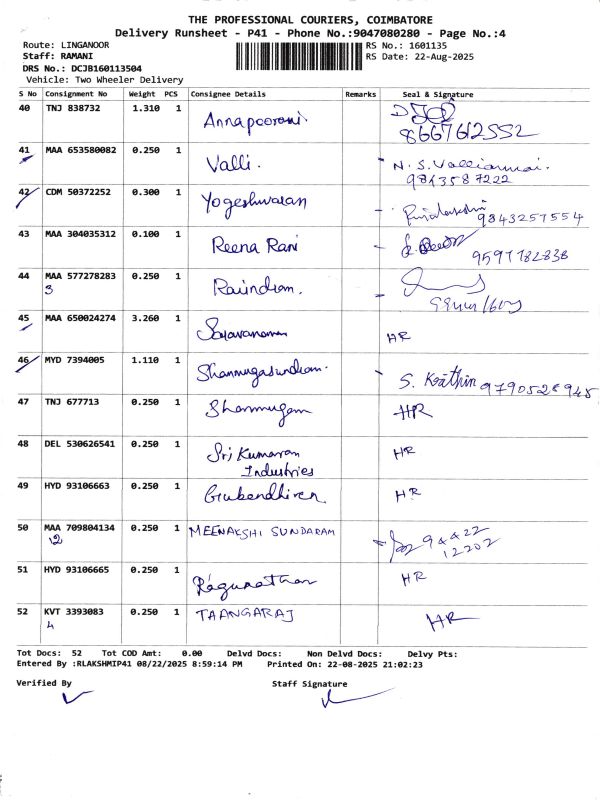 THE PROFESSIONAL COURIERS, COIMBATORE
Delivery Runsheet - P41 - Phone No.:9047080280 - Page No.:4
Route: LINGANOOR RS No.: 1601135
Staff: RAMANI RS Date: 22-Aug-2025
DRS No.: DCJB160113504
Vehicle: Two Wheeler Delivery
S No Consignment No Weight PCS Consignee Details Remarks Seal & Signature
40 TNJ 838732 1.310 1 Annapoorani.
8667612552
41 MAA 653580082 0.250 1 Valli. N. S. Valliammai.
9843587222
42 CDM 50372252 0.300 1 Yogeshwaran
9843257554
43 MAA 304035312 0.100 1 Reena Rani
9597782838
44 MAA 577278283 0.250 1 Ravindran.
3
45 MAA 650024274 3.260 1 Saravanan HR
46 MYD 7394005 1.110 1 Shanmugasundram. S. Kathin 9790528945
47 TNJ 677713 0.250 1 Shanmugam HR
48 DEL 530626541 0.250 1 Sri Kumaran HR
Industries
49 HYD 93106663 0.250 1 Gubendhiren HR
50 MAA 709804134 0.250 1 MEENAKSHI SUNDARAM 94422
12 12202
51 HYD 93106665 0.250 1 Ragunathan HR
52 KVT 3393083 0.250 1 TAANGARAJ HR
4
Tot Docs: 52 Tot COD Amt: 0.00 Delvd Docs: Non Delvd Docs: Delvy Pts:
Entered By :RLAKSHMIP41 08/22/2025 8:59:14 PM Printed On: 22-08-2025 21:02:23
Verified By Staff Signature